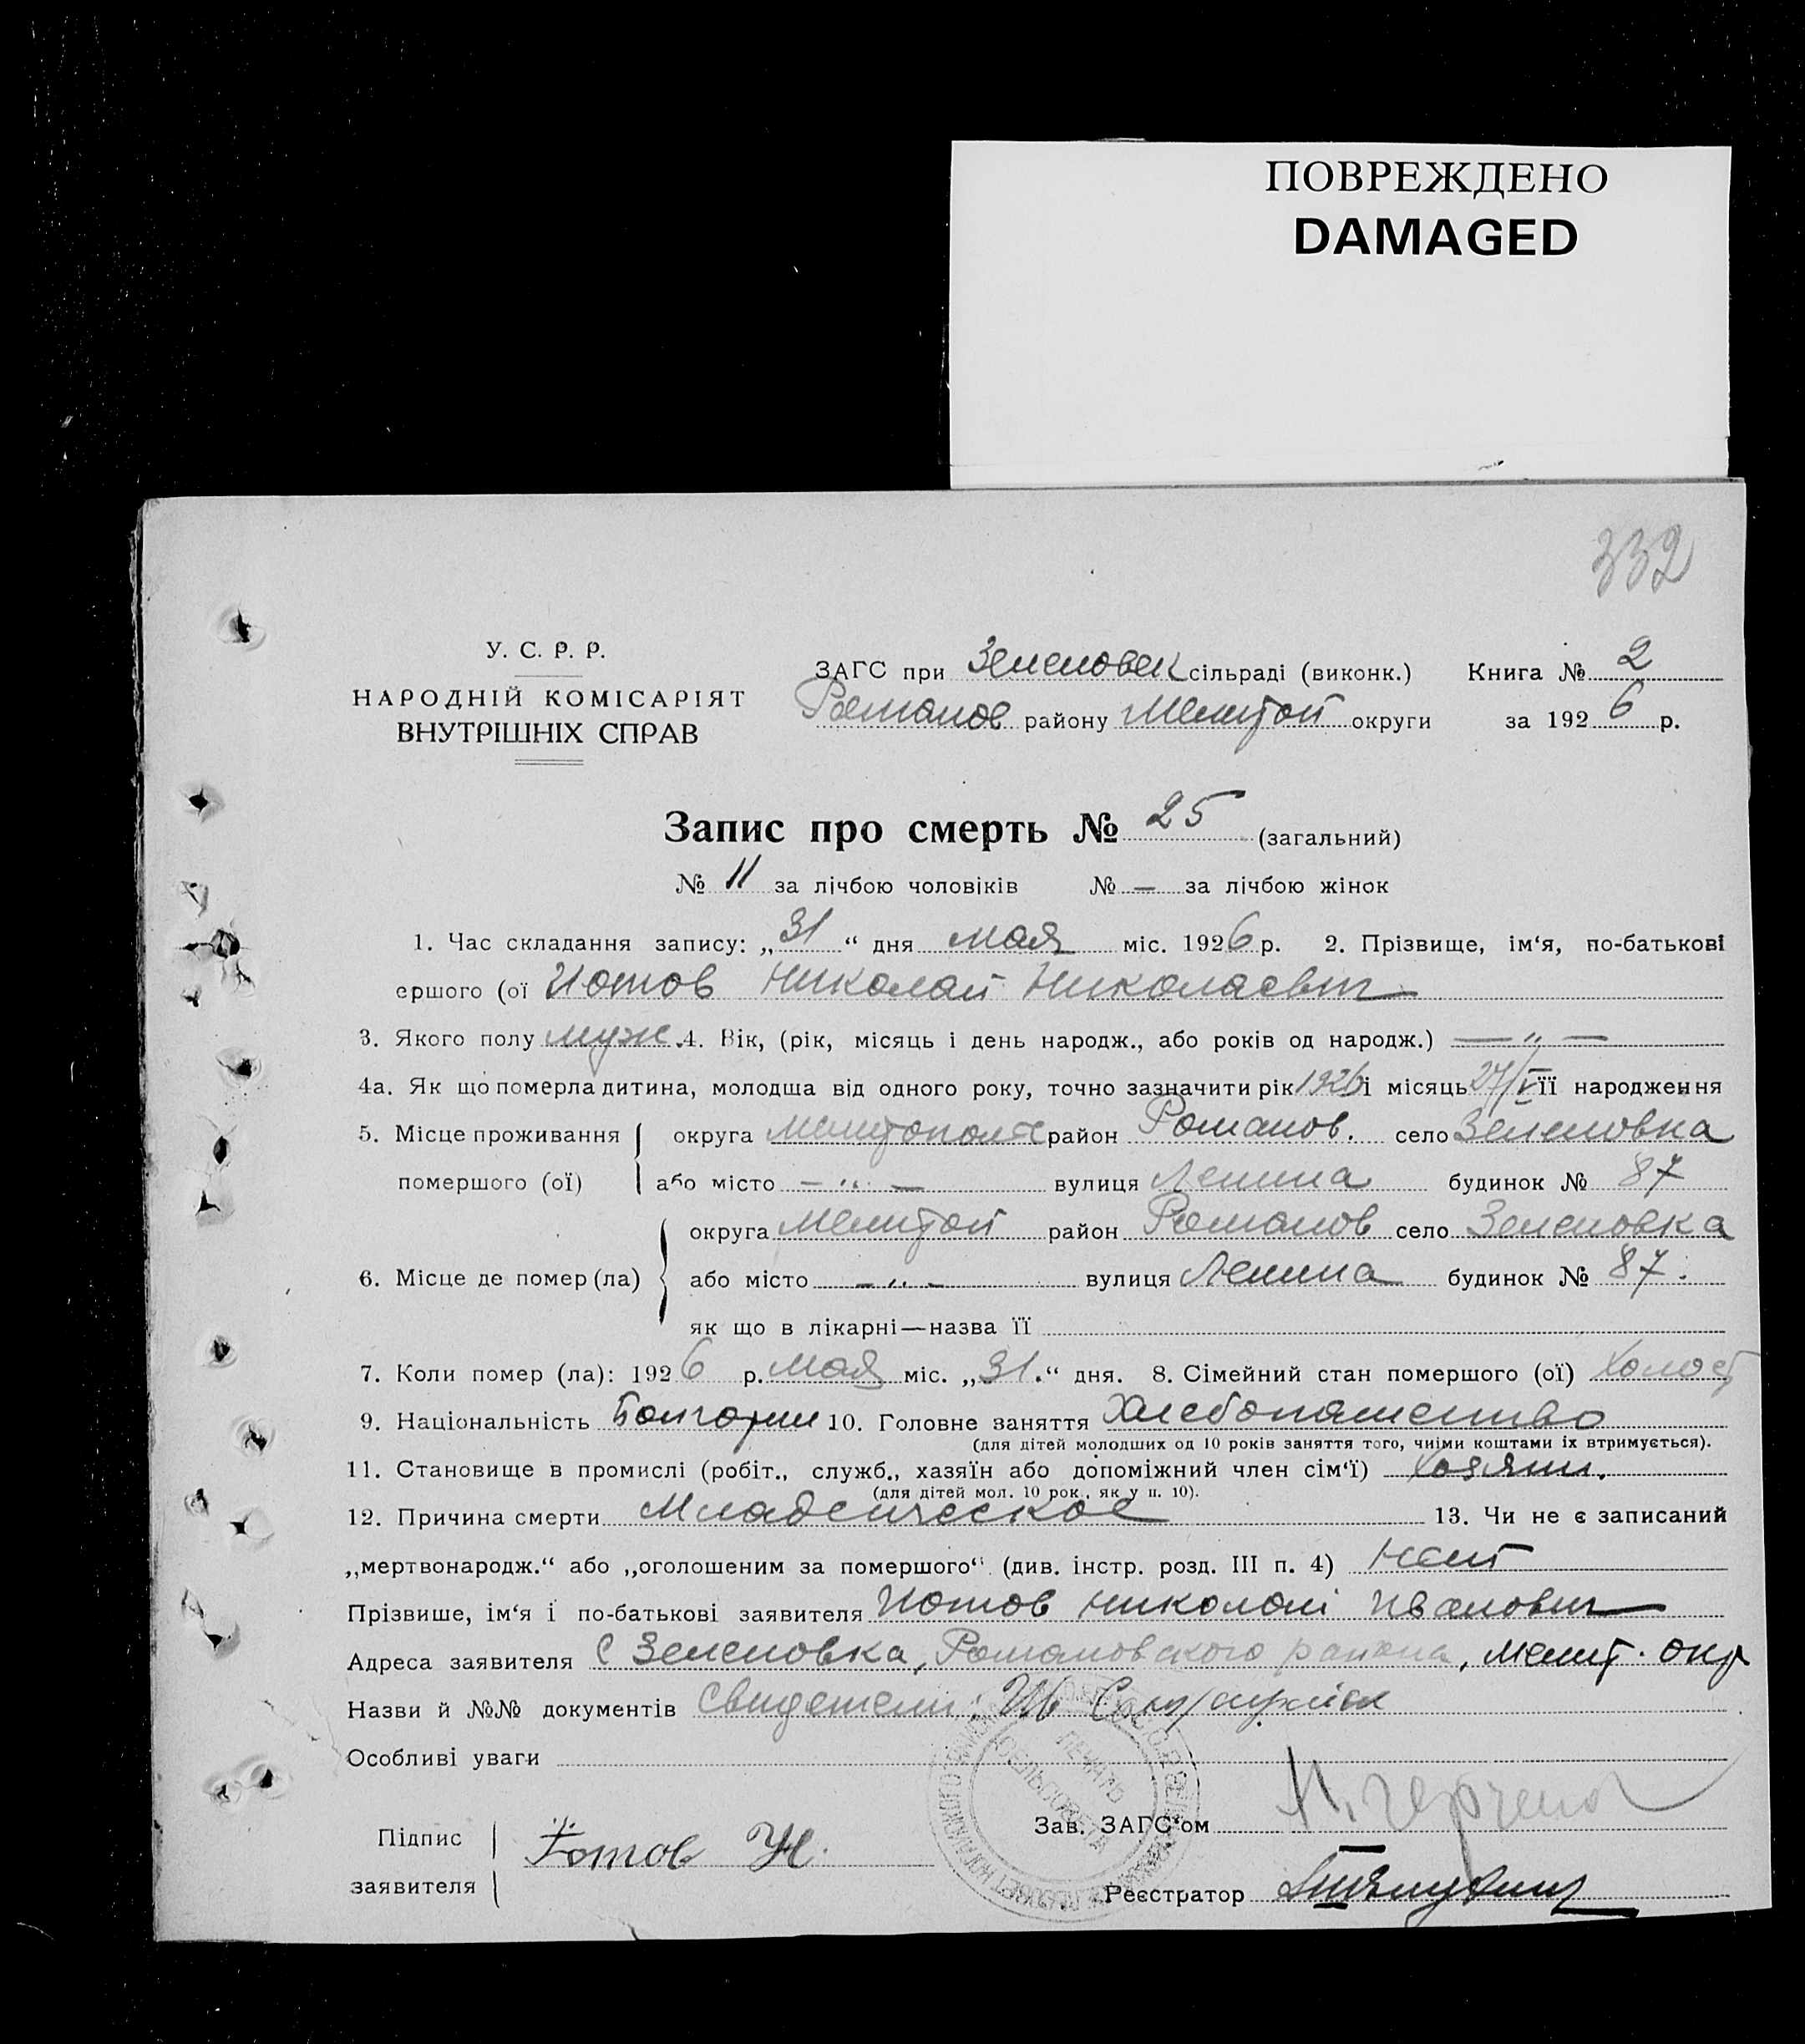 ПОВРЕЖДЕНО
DAMAGED
332
У. С. Р. Р.
НАРОДНІЙ КОМІСАРІЯТ
ВНУТРІШНІХ СПРАВ
ЗАГС при Зеленовск сільраді (виконк.) Книга № 2
Романов району Мелитоп округи за 1926 р.
Запис про смерть № 25 (загальний)
№ 11 за лічбою чоловіків № — за лічбою жінок
1. Час складання запису: „31“ дня мая міс. 1926 р. 2. Прізвище, ім‘я, по-батькові
ершого (ої Иотов Николай Николаевич
3. Якого полу муж. 4. Вік, (рік, місяць і день народж., або років од народж.) — „ —
4а. Як що померла дитина, молодша від одного року, точно зазначити рік 1926 і місяць 27/V її народження
5. Місце проживання округа Мелитопольск район Романов. село Зеленовка
помершого (ої) або місто — „ — вулиця Ленина будинок № 87
округа Мелитоп район Романов село Зеленовка
6. Місце де помер (ла) або місто — „ — вулиця Ленина будинок № 87.
як що в лікарні—назва її
7. Коли помер (ла): 1926 р. мая міс. „31.“ дня. 8. Сімейний стан помершого (ої) холост
9. Національність Болгарин 10. Головне заняття Хлебопашество
(для дітей молодших од 10 років заняття того, чиїми коштами їх втримується).
11. Становище в промислі (робіт., служб., хазяїн або допоміжний член сім‘ї) Хозяин.
(для дітей мол. 10 рок., як у п. 10).
12. Причина смерти Младенческое 13. Чи не є записаний
„мертвонародж.“ або „оголошеним за помершого“ (див. інстр. розд. III п. 4) Нет
Прізвише, ім‘я і по-батькові заявителя Иотов Николай Иванович
Адреса заявителя С Зеленовка, Романовского района, Мелит. окр
Назви й №№ документів Свидетели: Ив
Особливі уваги
ПЕЧАТЬ
СЕЛЬСОВЕТА
Зав. ЗАГС‘ом
Підпис
заявителя
Іотов Н.
Реєстратор